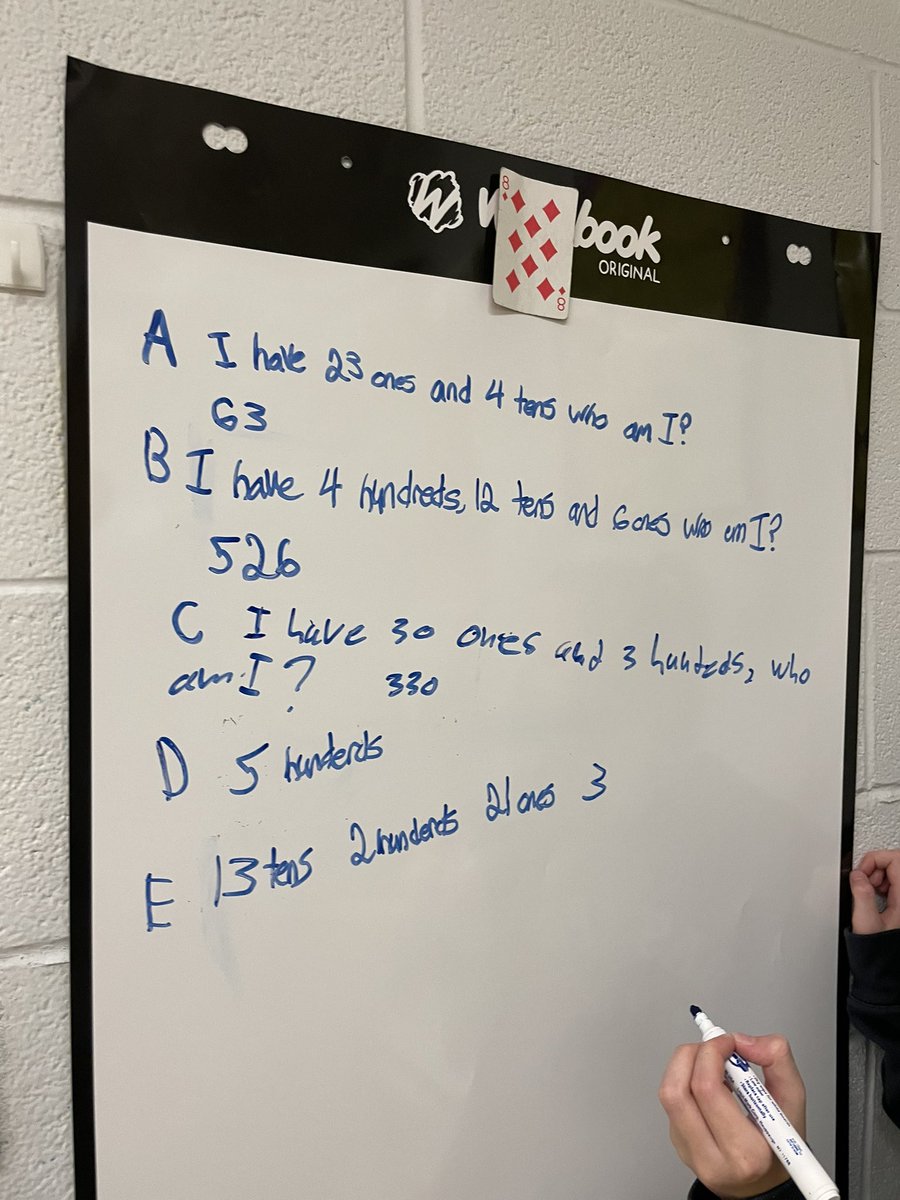 W book
ORIGINAL
8
8
A I have 23 ones and 4 tens who am I?
63
B I have 4 hundreds, 12 tens and 6 ones who am I?
526
C I have 30 ones and 3 hundreds, who
am I? 330
D 5 hunderds
E 13 tens 2 hunderds 21 ones 3